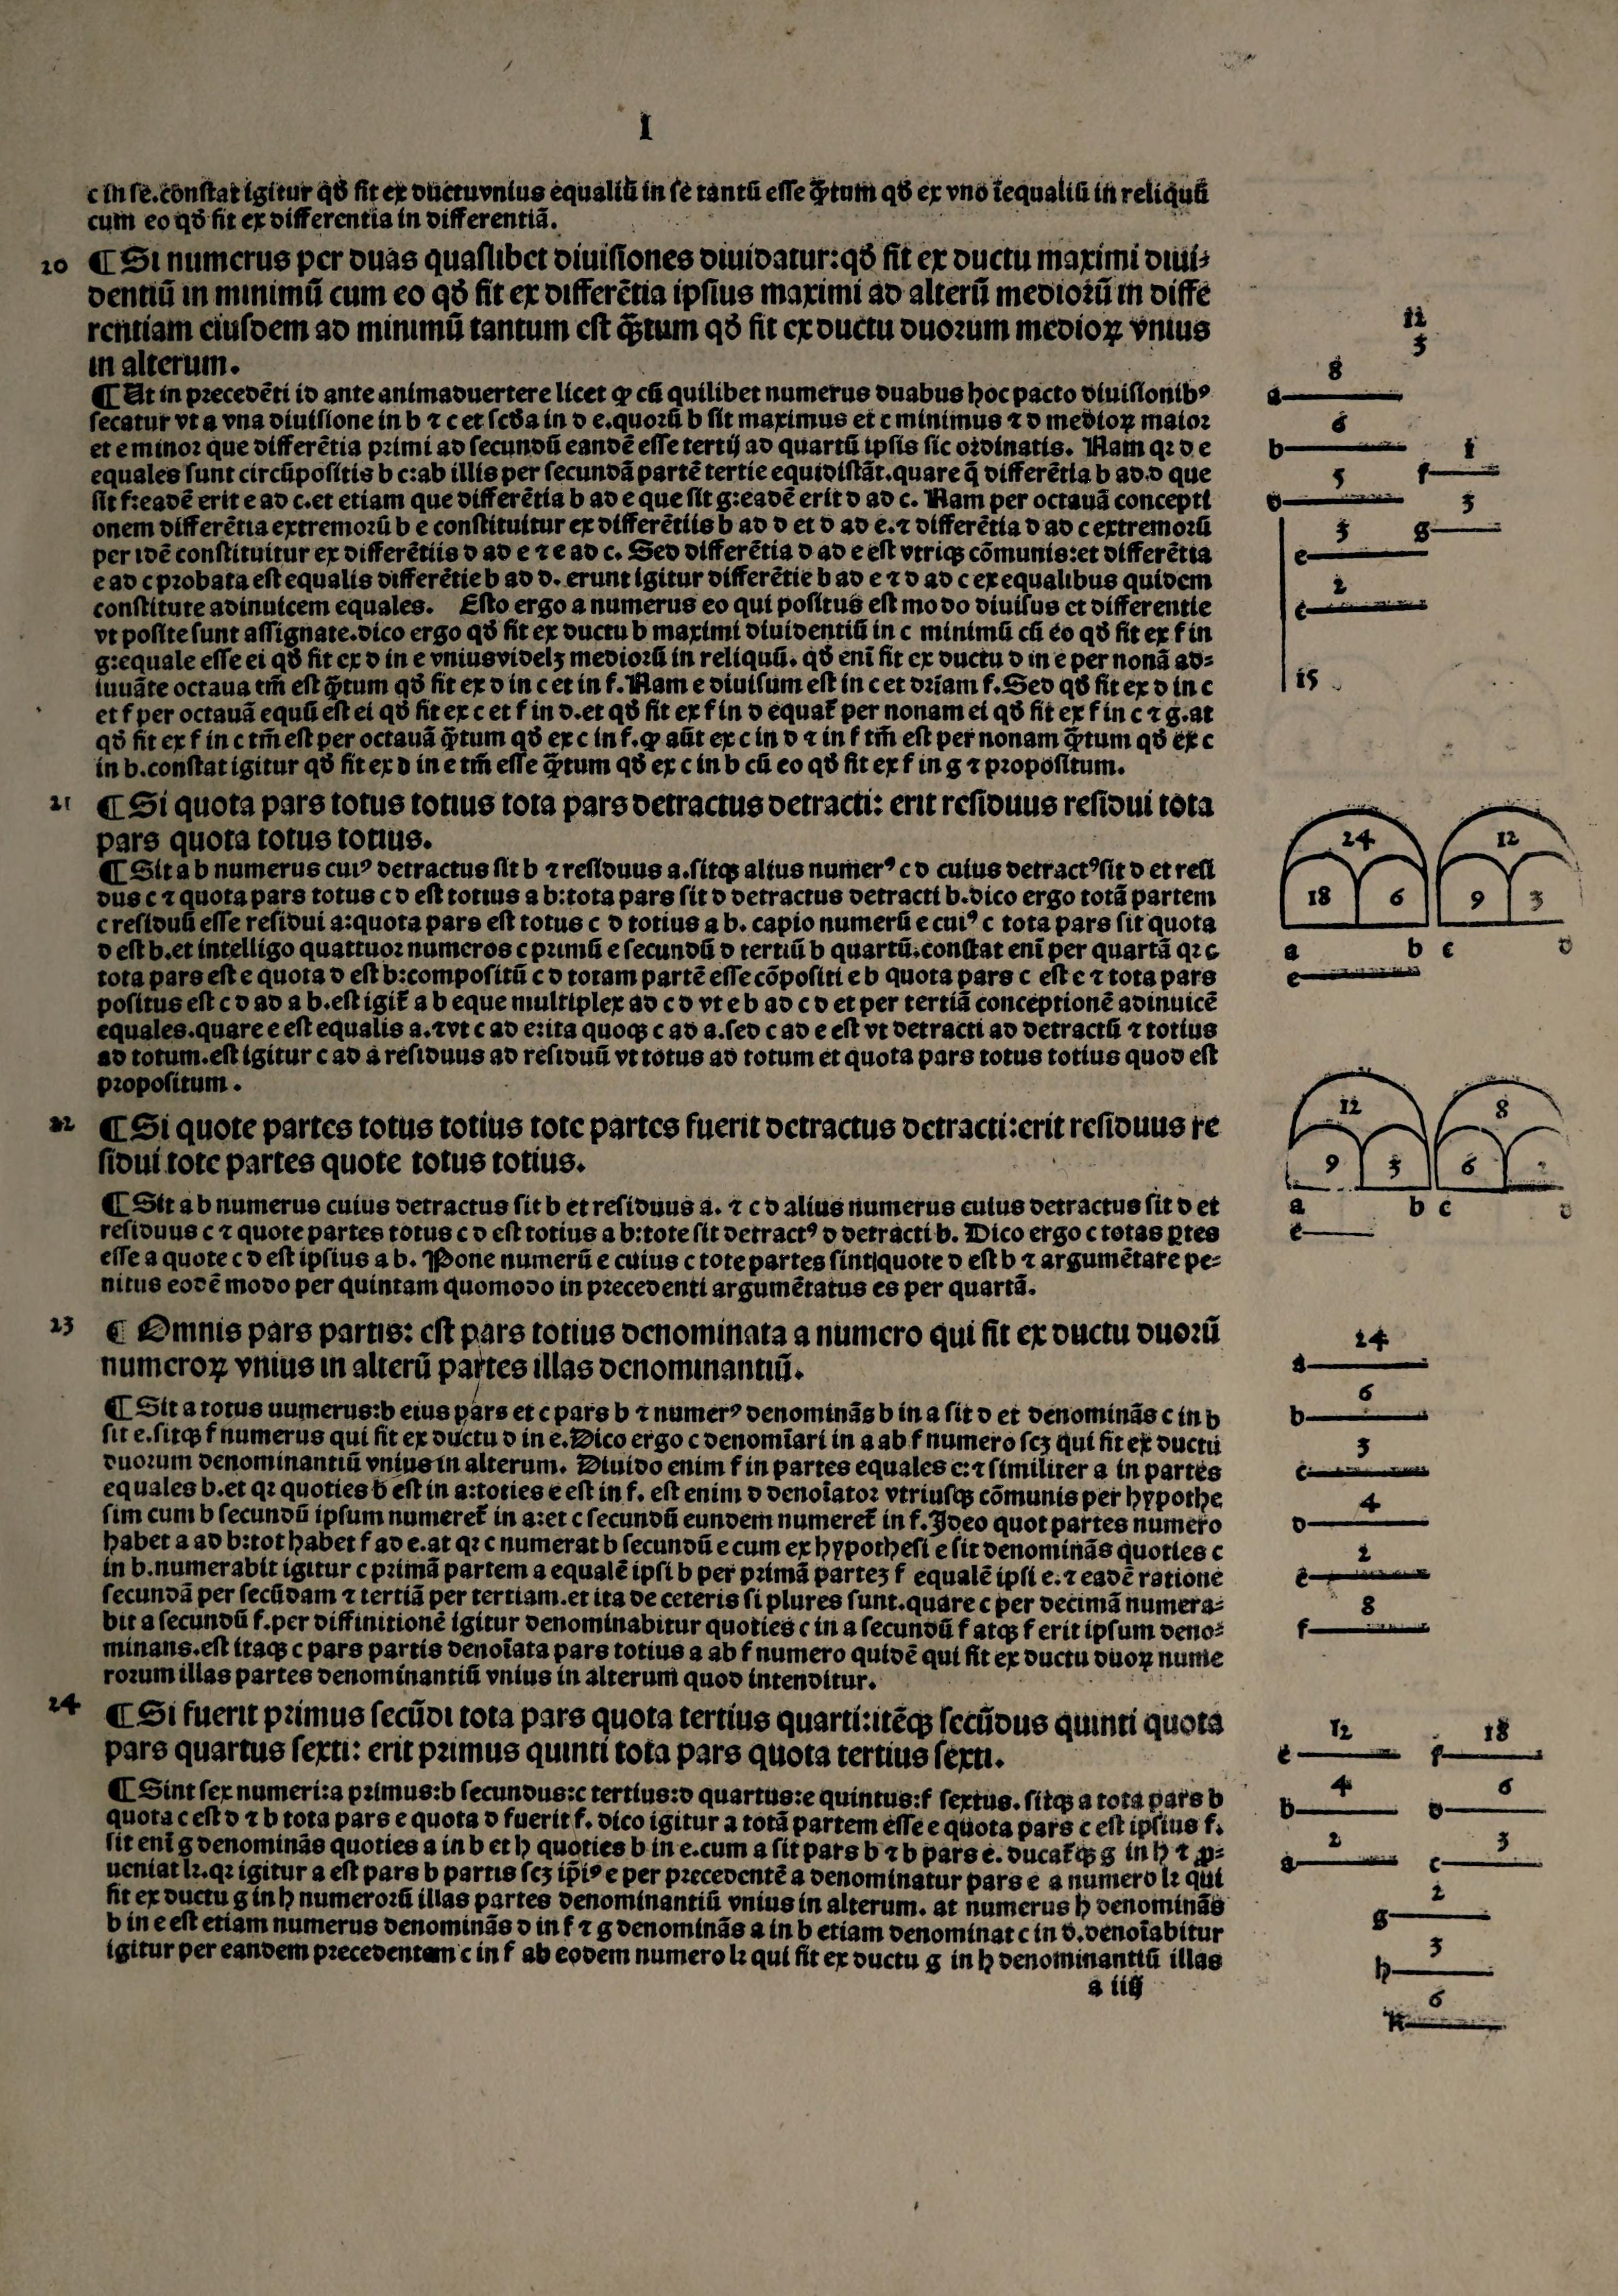 I
c in se.cōstat igitur qđ fit ex ductu vnius equaliū in se tantū esse q̃ꝫtum qđ ex vno īequaliū in reliquū
cum eo qđ fit ex differentia in differentiā.
20 ¶Si numerus per duas quaslibet diuisiones diuidatur:qđ fit ex ductu maximi diui⸗
dentiū in minimū cum eo qđ fit ex differētia ipsius maximi ad alterū mediorū in diffe
rentiam eiusdem ad minimū tantum est q̃ꝫtum qđ fit ex ductu duorum medioꝝ vnius
in alterum.
¶At in precedēti id ante animaduertere licet ꝙ cū quilibet numerus duabus hoc pacto diuisionibꝰ
secatur vt a vna diuisione in b ⁊ c et scđa in d e.quorū b sit maximus et c minimus ⁊ d medioꝝ maior
et e minor que differētia primi ad secundū eandē esse tertij ad quartū ipsis sic ordinatis. Nam qꝛ d e
equales sunt circūpositis b c:ab illis per secundā partē tertie equidistāt.quare q̄ differētia b ad.d que
sit f:eadē erit e ad c.et etiam que differētia b ad e que sit g:eadē erit d ad c. Nam per octauā concepti
onem differētia extremorū b e constituitur ex differētiis b ad d et d ad e.⁊ differētia d ad c extremorū
per idē constituitur ex differētiis d ad e ⁊ e ad c. Sed differētia d ad e est vtriqꝫ cōmunis:et differētia
e ad c probata est equalis differētie b ad d. erunt igitur differētie b ad e ⁊ d ad c ex equalibus quidem
constitute adinuicem equales. Esto ergo a numerus eo qui positus est modo diuisus et differentie
vt posite sunt assignate.dico ergo qđ fit ex ductu b maximi diuidentiū in c minimū cū eo qđ fit ex f in
g:equale esse ei qđ fit ex d in e vnius videlꝫ mediorū in reliquū. qđ enī fit ex ductu d in e per nonā ad⸗
iuuāte octaua tm̄ est q̃ꝫtum qđ fit ex d in c et in f.Nam e diuisum est in c et driam f.Sed qđ fit ex d in c
et f per octauā equū est ei qđ fit ex c et f in d.et qđ fit ex f in d equat̃ per nonam ei qđ fit ex f in c ⁊ g.at
qđ fit ex f in c tm̄ est per octauā q̃ꝫtum qđ ex c in f.ꝙ aūt ex c in d ⁊ in f tm̄ est per nonam q̃ꝫtum qđ ex c
in b.constat igitur qđ fit ex d in e tm̄ esse q̃ꝫtum qđ ex c in b cū eo qđ fit ex f in g ⁊ propositum.
21 ¶Si quota pars totus totius tota pars detractus detracti: erit residuus residui tota
pars quota totus totius.
¶Sit a b numerus cuiꝰ detractus sit b ⁊ residuus a.sitqꝫ alius numerꝰ c d cuius detractꝰ sit d et resi
duus c ⁊ quota pars totus c d est totius a b:tota pars sit d detractus detracti b.dico ergo totā partem
c residuū esse residui a:quota pars est totus c d totius a b. capio numerū e cuiꝰ c tota pars sit quota
d est b.et intelligo quattuor numeros c primū e secundū d tertiū b quartū.constat enī per quartā qꝛ c
tota pars est e quota d est b:compositū c d totam partē esse cōpositi e b quota pars c est e ⁊ tota pars
positus est c d ad a b.est igit̃ a b eque multiplex ad c d vt e b ad c d et per tertiā conceptionē adinuicē
equales.quare e est equalis a.⁊vt c ad e:ita quoqꝫ c ad a.sed c ad e est vt detracti ad detractū ⁊ totius
ad totum.est igitur c ad a residuus ad residuū vt totus ad totum et quota pars totus totius quod est
propositum.
22 ¶Si quote partes totus totius tote partes fuerit detractus detracti:erit residuus re
sidui tote partes quote totus totius.
¶Sit a b numerus cuius detractus sit b et residuus a. ⁊ c d alius numerus cuius detractus sit d et
residuus c ⁊ quote partes totus c d est totius a b:tote sit detractꝰ d detracti b. Dico ergo c totas ꝑtes
esse a quote c d est ipsius a b. Pone numerū e cuius c tote partes sint quote d est b ⁊ argumētare pe⸗
nitus eodē modo per quintam quomodo in precedenti argumētatus es per quartā.
23 ¶ Omnis pars partis: est pars totius denominata a numero qui fit ex ductu duorū
numeroꝝ vnius in alterū partes illas denominantiū.
¶Sit a totus uumerus:b eius pars et c pars b ⁊ numerꝰ denominās b in a sit d et denominās c in b
sit e.sitqꝫ f numerus qui fit ex ductu d in e.Dico ergo c denomīari in a ab f numero scꝫ qui fit ex ductu
duorum denominantiū vnius in alterum. Diuido enim f in partes equales e:⁊ similiter a in partes
equales b.et qꝛ quoties b est in a:toties e est in f. est enim d denoīator vtriusqꝫ cōmunis per hypothe
sim cum b secundū ipsum numeret̃ in a:et e secundū eundem numeret̃ in f.Ideo quot partes numero
habet a ad b:tot habet f ad e.at qꝛ c numerat b secundū e cum ex hypothesi e sit denominās quoties c
in b.numerabit igitur c primā partem a equalē ipsi b per primā parteꝫ f equalē ipsi e.⁊ eadē ratione
secundā per secūdam ⁊ tertiā per tertiam.et ita de ceteris si plures sunt.quare c per decimā numera⸗
bit a secundū f.per diffinitionē igitur denominabitur quoties c in a secundū f atqꝫ f erit ipsum deno⸗
minans.est itaqꝫ c pars partis denoīata pars totius a ab f numero quidē qui fit ex ductu duoꝝ nume
rorum illas partes denominantiū vnius in alterum quod intenditur.
24 ¶Si fuerit primus secūdi tota pars quota tertius quarti:itēqꝫ secūdus quinti quota
pars quartus sexti: erit primus quinti tota pars quota tertius sexti.
¶Sint sex numeri:a primus:b secundus:c tertius:d quartus:e quintus:f sextus. sitqꝫ a tota pars b
quota c est d ⁊ b tota pars e quota d fuerit f. dico igitur a totā partem esse e quota pars c est ipsius f.
sit enī g denominās quoties a in b et h quoties b in e.cum a sit pars b ⁊ b pars e. ducat̃qꝫ g in h ⁊ ꝓ⸗
ueniat k.qꝛ igitur a est pars b partis scꝫ ip̄iꝰ e per precedentē a denominatur pars e a numero k qui
fit ex ductu g in h numerorū illas partes denominantiū vnius in alterum. at numerus h denominās
b in e est etiam numerus denominās d in f ⁊ g denominās a in b etiam denominat c in d.denoīabitur
igitur per eandem precedentem c in f ab eodem numero k qui fit ex ductu g in h denominantiū illas
a iiij
11
3
8
a
6
b
1
f
5
d
3
g
3
e
2
c
15
24 12
18 6 9 3
a b c d
e
12 8
9 3 6
a b c d
e
24
a
6
b
3
c
4
d
2
e
8
f
12 18
e f
4 6
b d
2 3
a c
2
g
3
h
6
k